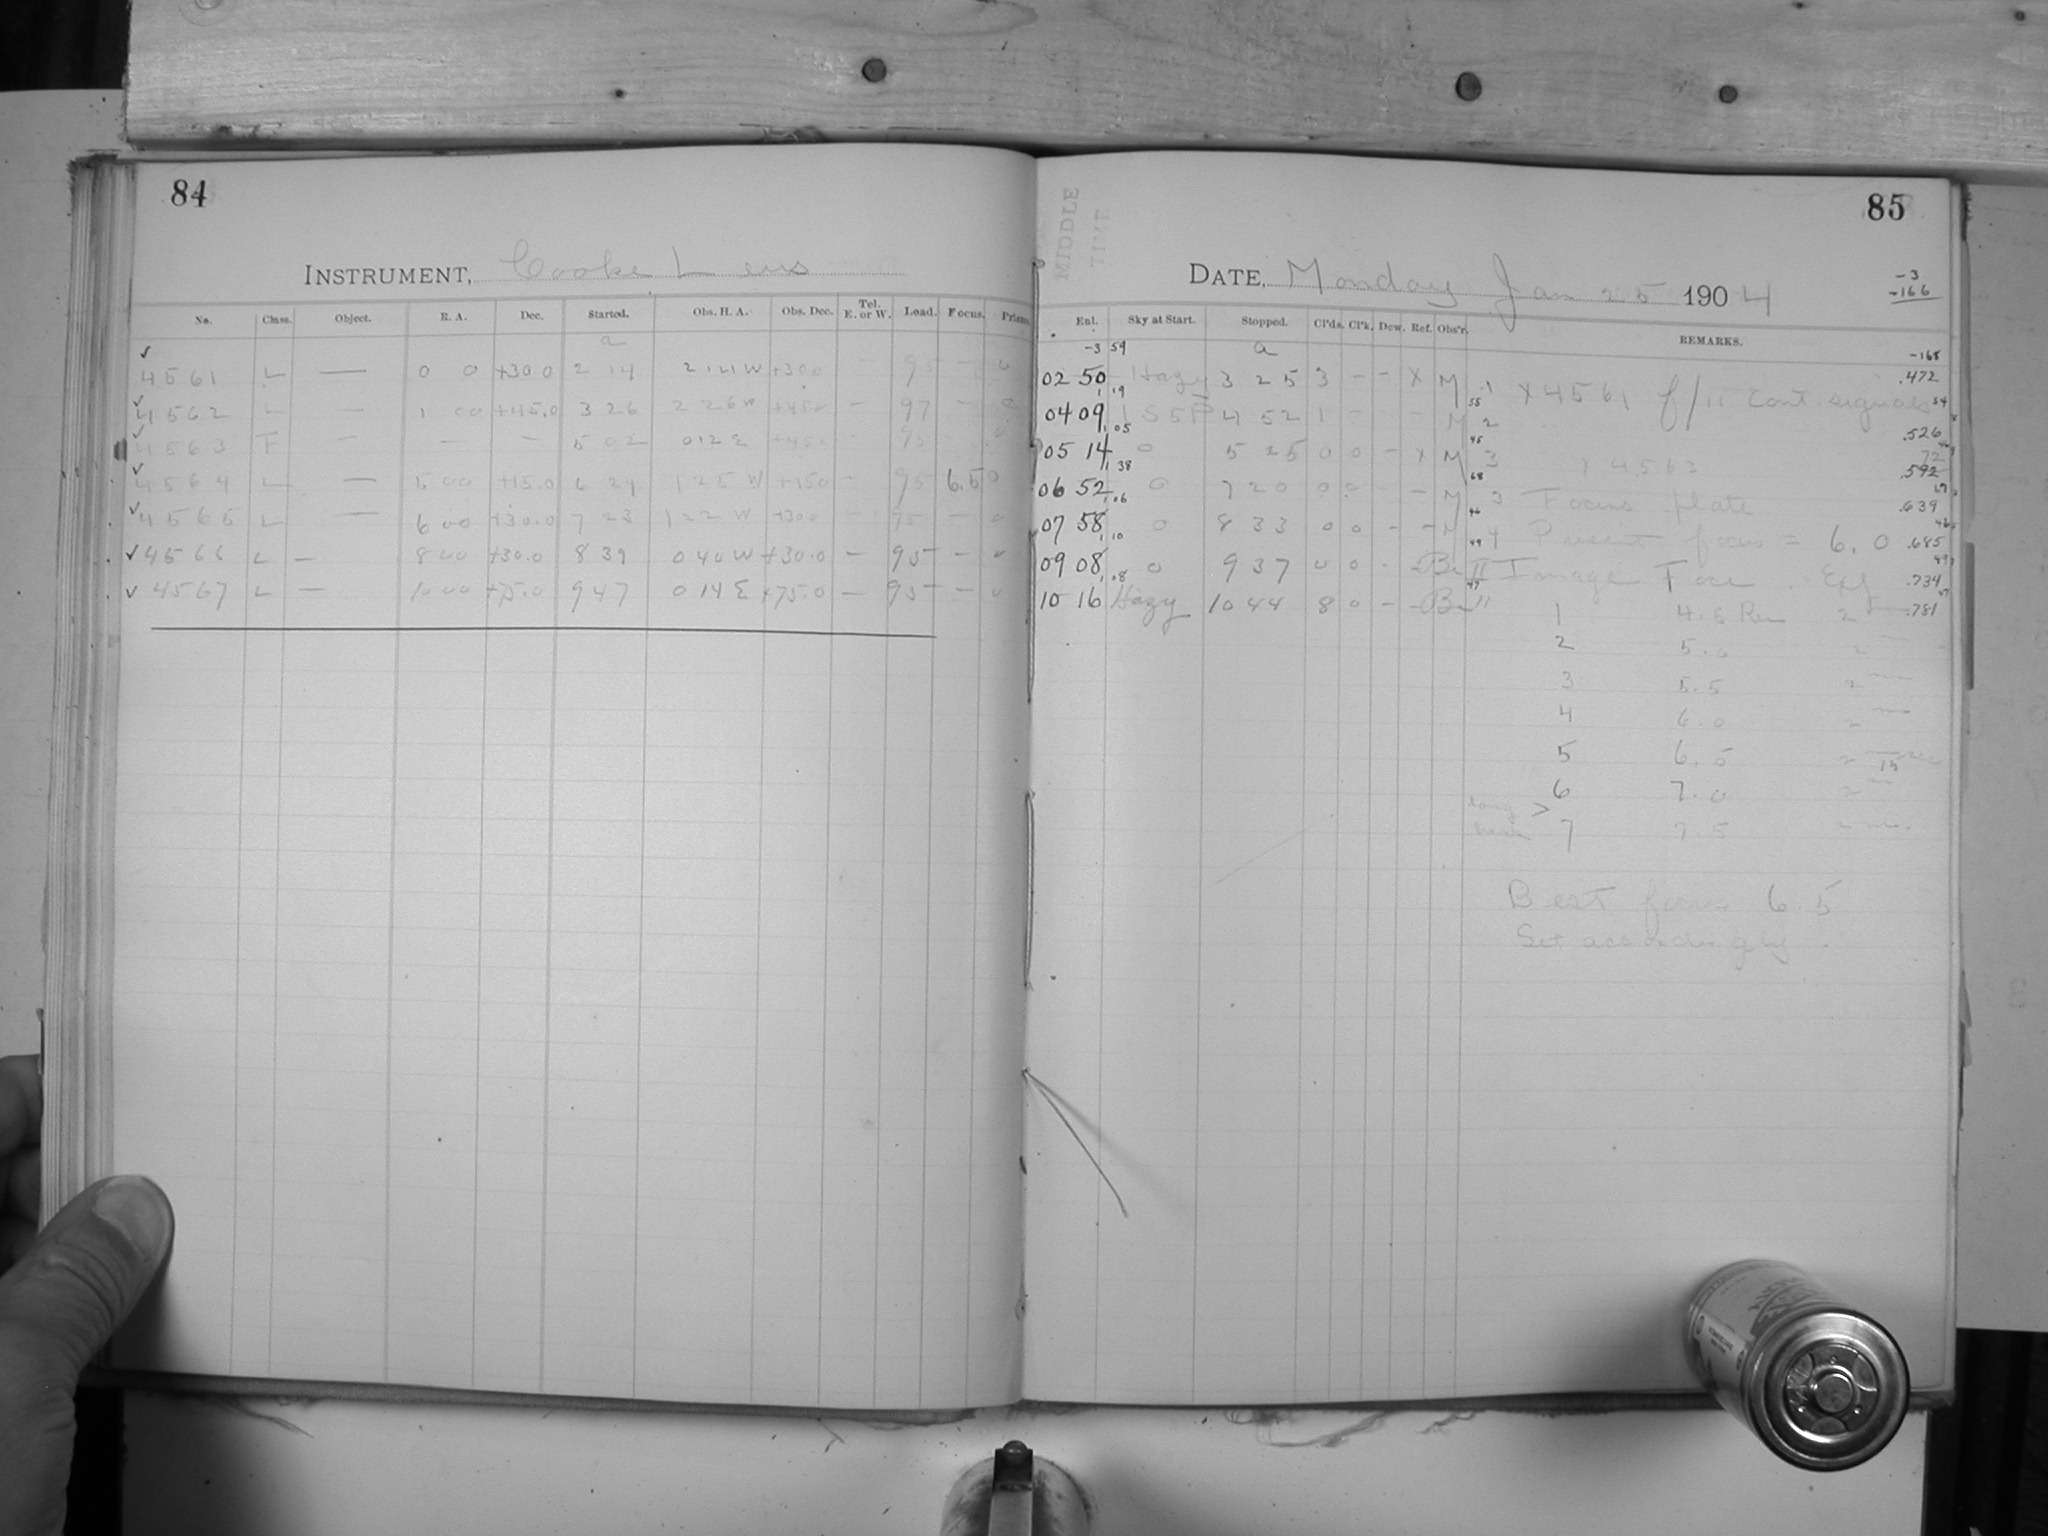 84
INSTRUMENT, Cooke Lens
No. Class. Object. R. A. Dec. Started. Obs. H. A. Obs. Dec. Tel. E. or W. Load. Focus. Prism.
a
✓ 4561 L — 0 0 +30 0 2 14 2 14 W +30 0 - 95 - 0
✓ 4562 L — 1 00 +45.0 3 26 2 26 W +45 0 - 97 - 0
✓ 4563 F — — — 5 02 0 12 E +45 0 - 95 - 0
✓ 4564 L — 5 00 +15.0 6 24 1 25 W +15 0 - 95 6.5 0
✓ 4565 L — 6 00 +30.0 7 23 1 22 W +30 0 - 95 - 0
✓ 4566 L — 8 00 +30.0 8 39 0 40 W +30.0 — 95 - 0
✓ 4567 L — 10 00 +75.0 9 47 0 14 E +75.0 — 95 - 0
85
MIDDLE
TIME
DATE, Monday Jan 25 1904
-3
-166
Ent. Sky at Start. Stopped. Cl'ds. Cl'k. Dew. Ref. Obs'r. REMARKS.
-3 59 a -168
02 50 Hazy 3 25 3 - - x M 1 x 4561 f/11 Cont. signals .472
19 55 54
04 09 1 S 5 P 4 52 1 - - - M 2 .526
05 45
05 14 0 5 25 0 0 - x M 3 x 4563 72 .592
38 68
06 52 0 7 20 0 0 - - M 3 Focus plate .639
06 46
07 58 0 8 33 0 0 - - M 4 Present focus = 6.0 .685
10 49
09 08 0 9 37 0 0 - - Be II Image Foc. Exp .734
08 47
10 16 Hazy 10 44 8 0 - - Be " .781
1 4.5 Rev 2
2 5.0 2
3 5.5 2
4 6.0 2
5 6.5 2 15
6 7.0 2
long >
7 7.5 2
Best focus 6.5
Set accordingly.